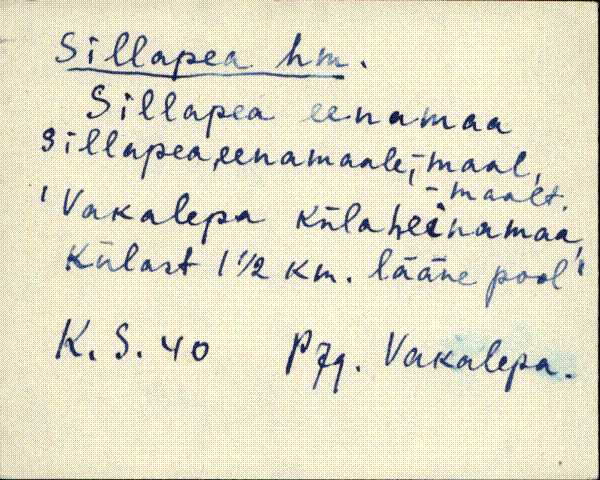 Sillapea hm.
Sillapea eenamaa
Sillapea,eenamaale,-maal,
-maalt.
'Vakalepa külaheinamaa,
Külast 1 1/2 km. lääne pool'
K. S. 40 Pjg. Vakalepa.